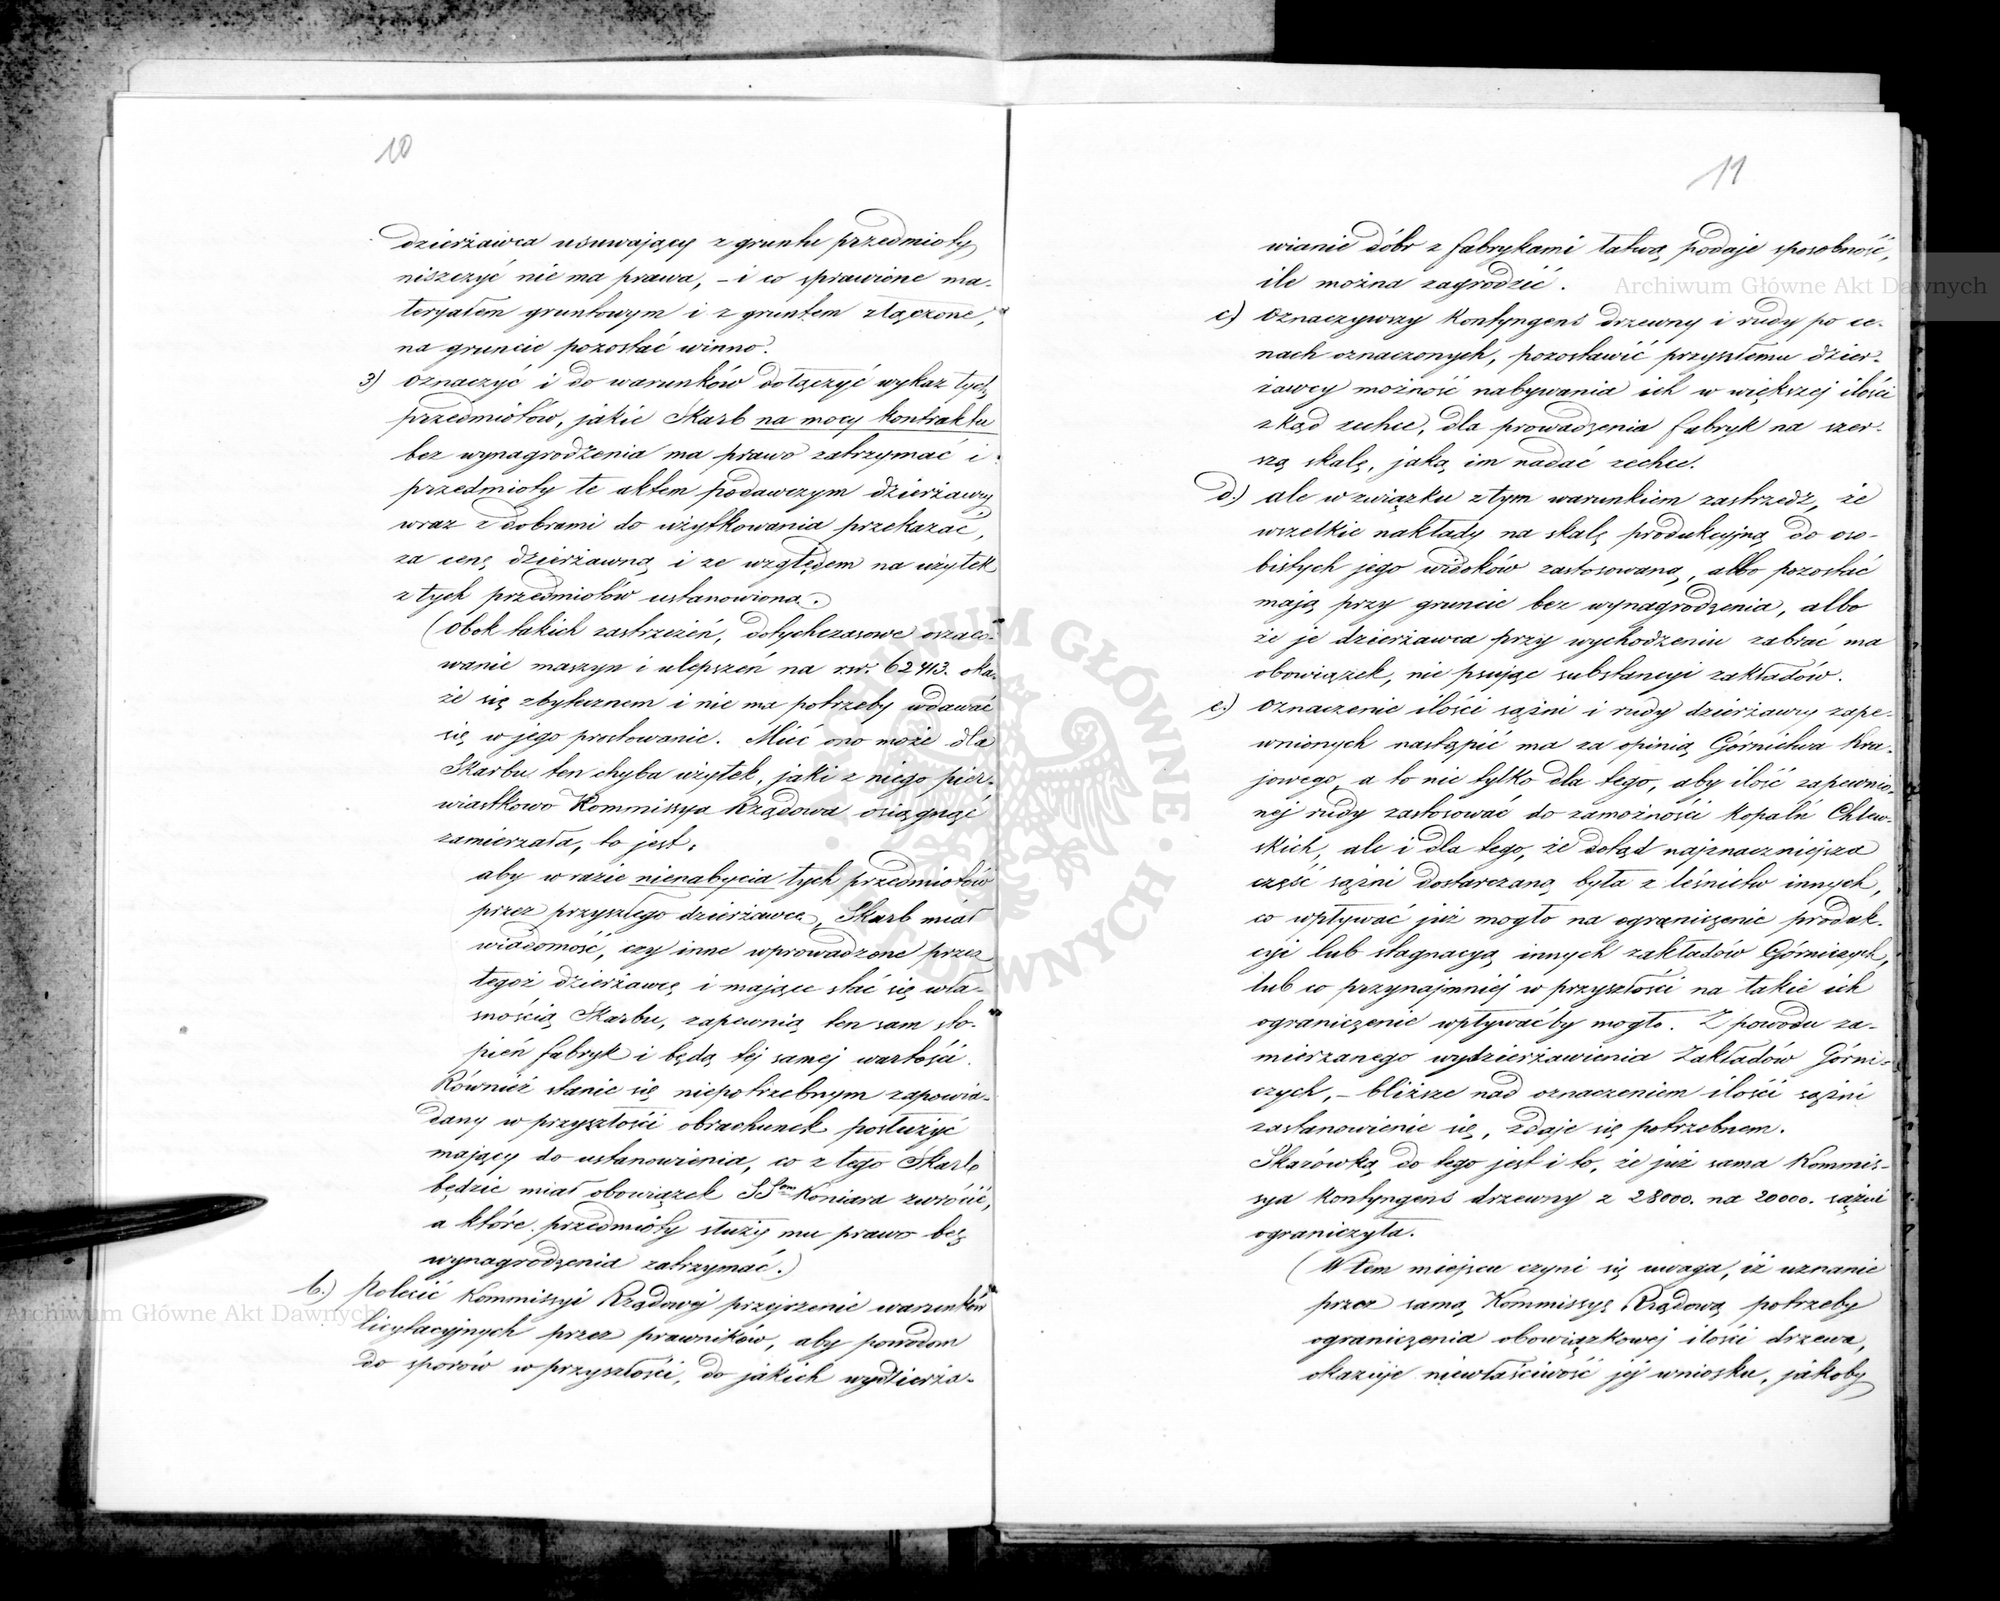 10
dzierżawca usuwający z gruntu przedmioty
niszczyć nie ma prawa, – i co sprawione ma-
teryałem gruntowym i z gruntem złączone,
na gruncie pozostać winno.
3) oznaczyć i do warunków dołączyć wykaz tych
przedmiotów, jakie Skarb na mocy kontraktu
bez wynagrodzenia ma prawo zatrzymać i
przedmioty te aktem podawczym dzierżawcy
wraz z dobrami do użytkowania przekazać,
za cenę dzierżawną i ze względem na użytek
z tych przedmiotów ustanowioną.
(Obok takich zastrzeżeń, dotychczasowe oszaco-
wanie maszyn i ulepszeń na rsr. 62413. oka-
że się zbytecznem i nie ma potrzeby wdawać
się w jego prostowanie. Mieć ono może dla
Skarbu ten chyba użytek, jaki z niego pier-
wiastkowo Kommissya Rządowa osiągnąć
zamierzała, to jest,
aby w razie nienabycia tych przedmiotów
przez przyszłego dzierżawcę, Skarb miał
wiadomość, czy inne wprowadzone przez
tegoż dzierżawcę i mające stać się wła-
snością Skarbu, zapewnią ten sam sto-
pień fabryk i będą tej samej wartości.
Również stanie się niepotrzebnym zapowia-
dany w przyszłości obrachunek posłużyć
mający do ustanowienia, co z tego Skarb
będzie miał obowiązek SSom Koniara zwrócić,
a które przedmioty służy mu prawo bez
wynagrodzenia zatrzymać.)
b.) Polecić Kommissyi Rządowej przejrzenie warunków
licytacyjnych przez prawników, aby powodom
do sporów w przyszłości, do jakich wydzierża-
11
wianie dóbr z fabrykami łatwą podaje sposobność,
ile można zagrodzić.
c) Oznaczywszy kontyngens drzewny i rudy po ce-
nach oznaczonych, pozostawić przyszłemu dzier-
żawcy możność nabywania ich w większej ilości
zkąd zechce, dla prowadzenia fabryk na szer-
szą skalę, jaką im nadać zechce.
d.) ale w związku z tym warunkiem zastrzedz, że
wszelkie nakłady na skalę produkcyjną do oso-
bistych jego widoków zastosowaną, albo pozostać
mają przy gruncie bez wynagrodzenia, albo
że je dzierżawca przy wychodzeniu zabrać ma
obowiązek, nie psując substancyi zakładów.
e.) Oznaczenie ilości sążni i rudy dzierżawcy zape-
wnionych nastąpić ma za opinią Górnictwa Kra-
jowego, a to nie tylko dla tego, aby ilość zapewnio-
nej rudy zastosować do zamożności kopalń Chlew-
skich, ale i dla tego, że dotąd najznaczniejsza
część sążni dostarczaną była z leśnictw innych,
co wpływać już mogło na ograniczenie produk-
cyi lub stagnacyą innych zakładów Górniczych,
lub co przynajmniej w przyszłości na takie ich
ograniczenie wpływaćby mogło. Z powodu za-
mierzanego wydzierżawienia Zakładów Górni-
czych, – bliższe nad oznaczeniem ilości sążni
zastanowienie się, zdaje się potrzebnem.
Skazówką do tego jest i to, że już sama Kommis-
sya kontyngens drzewny z 28000. na 20000. sążni
ograniczyła.
(W tem miejscu czyni się uwaga, iż uznanie
przez samą Kommissyę Rządową potrzeby
ograniczenia obowiązkowej ilości drzewa,
okazuje niewłaściwość jej wniosku, jakoby
Archiwum Główne Akt Dawnych
Archiwum Główne Akt Dawnych
ARCHIWUM GŁÓWNE AKT DAWNYCH